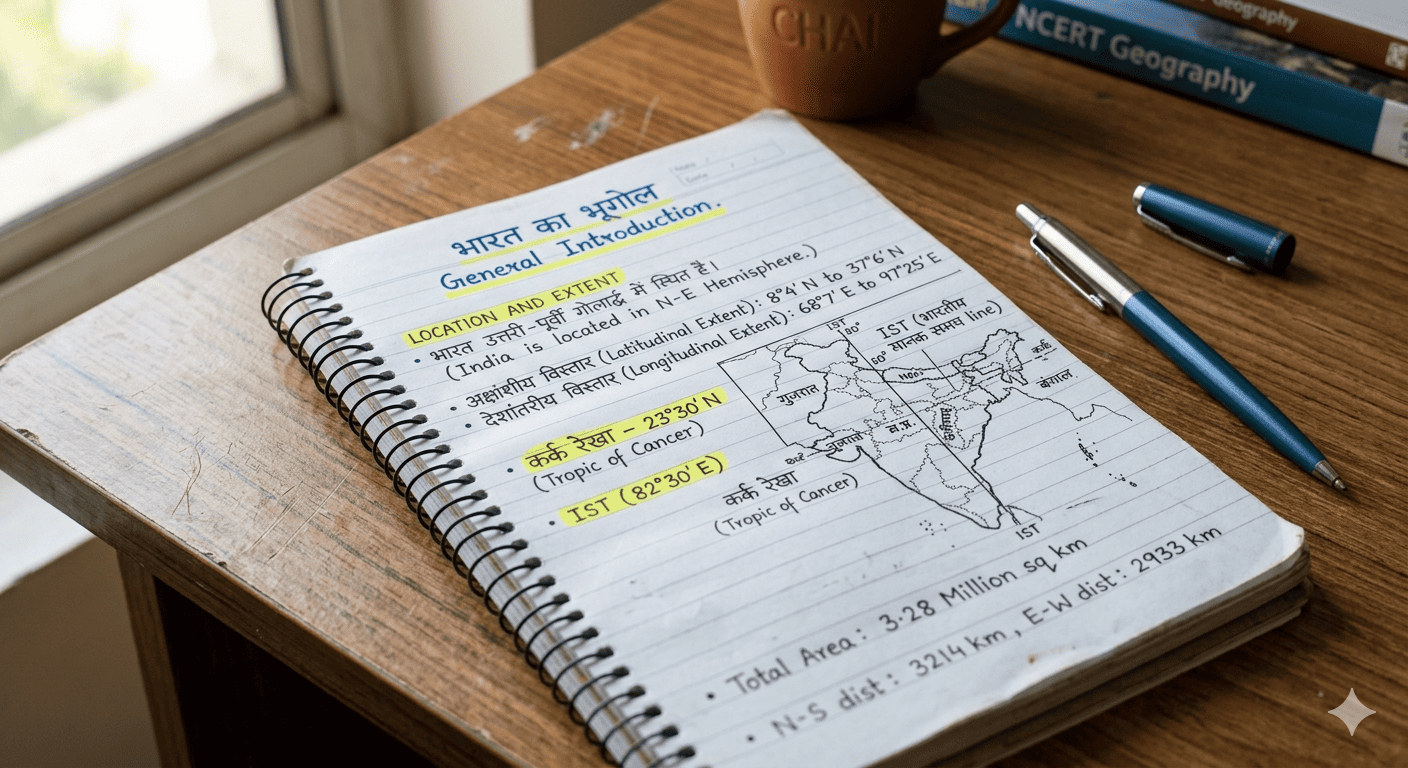 CHAI
NCERT Geography
Geography
भारत का भूगोल
General Introduction.
LOCATION AND EXTENT
• भारत उत्तरी-पूर्वी गोलार्द्ध में स्थित है।
(India is located in N-E Hemisphere.)
• अक्षांशीय विस्तार (Latitudinal Extent): 8°4' N to 37°6' N
• देशांतरीय विस्तार (Longitudinal Extent): 68°7' E to 97°25' E
• कर्क रेखा – 23°30' N
(Tropic of Cancer)
• IST (82°30' E)
IST
IST (भारतीय
मानक समय line)
गुजरात
कर्क
बंगाल
कर्क रेखा
(Tropic of Cancer)
IST
• Total Area: 3.28 Million sq km
• N-S dist: 3214 km, E-W dist: 2933 km